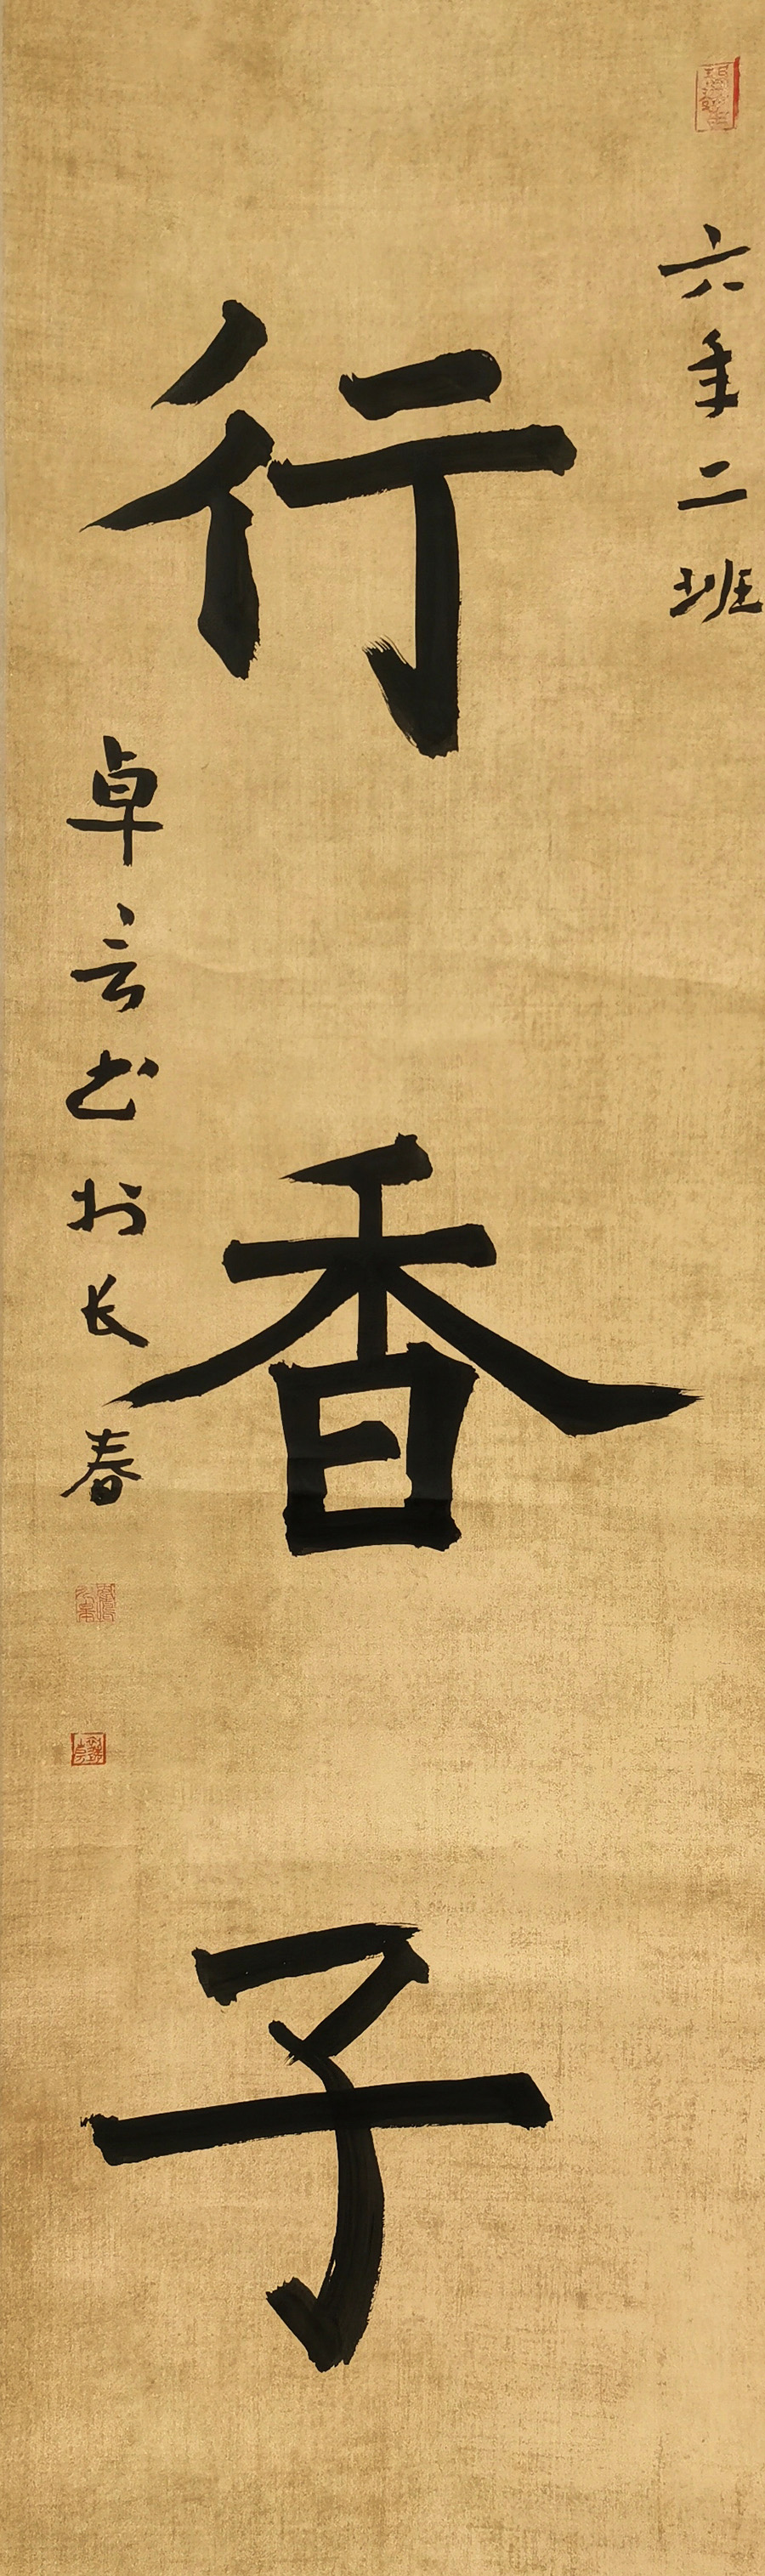 六年二班
行香子
卓言书於长春